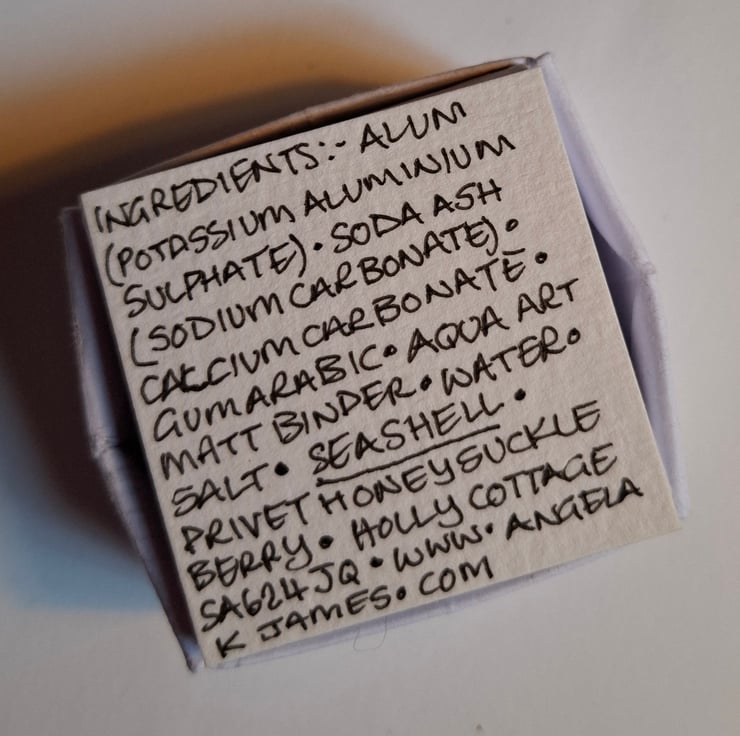 INGREDIENTS:- ALUM
(POTASSIUM ALUMINIUM
SULPHATE). SODA ASH
(SODIUM CARBONATE).
CALCIUM CARBONATE.
GUM ARABIC. AQUA ART
MATT BINDER. WATER.
SALT. SEASHELL.
PRIVET HONEYSUCKLE
BERRY. HOLLY COTTAGE
SA624JQ. WWW. ANGELA
K JAMES. COM